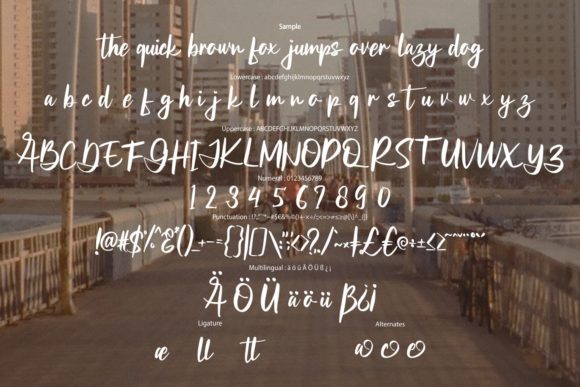 Sample
the quick brown fox jumps over lazy dog
Lowercase : abcdefghijklmnopqrstuvwxyz
a b c d e f g h i j k l m n o p q r s t u v w x y z
Uppercase : ABCDEFGHIJKLMNOPQRSTUVWXYZ
ABCDEFGHIJKLMNOPQRSTUVWXYZ
Numeral : 0123456789
1 2 3 4 5 6 7 8 9 0
Punctuation :
Multilingual : ä ö ü Ä Ö Ü ß ¿ ¡
Ä Ö Ü ä ö ü ß ¿ ¡
Ligature Alternates
æ ll tt